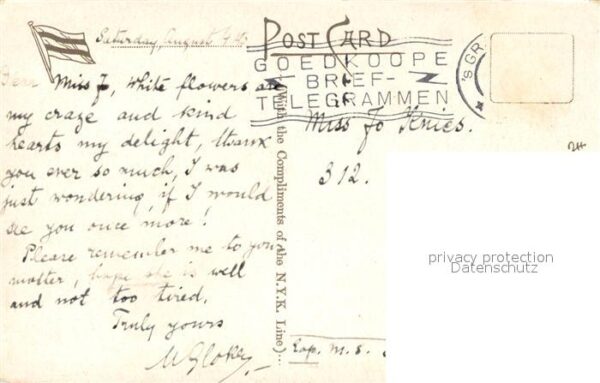 Saturday, August
POST CARD
GOEDKOOPE
BRIEF-
TELEGRAMMEN
'S GR
Dear Miss Jo, White flowers are
my craze and kind
hearts my delight, thank
you ever so much, I was
just wondering if I would
see you once more!
Please remember me to your
mother, hope she is well
and not too tired.
Truly yours
(With the Compliments of the N.Y.K. Line)
Miss Jo Knies.
312.
privacy protection
Datenschutz
m. s.